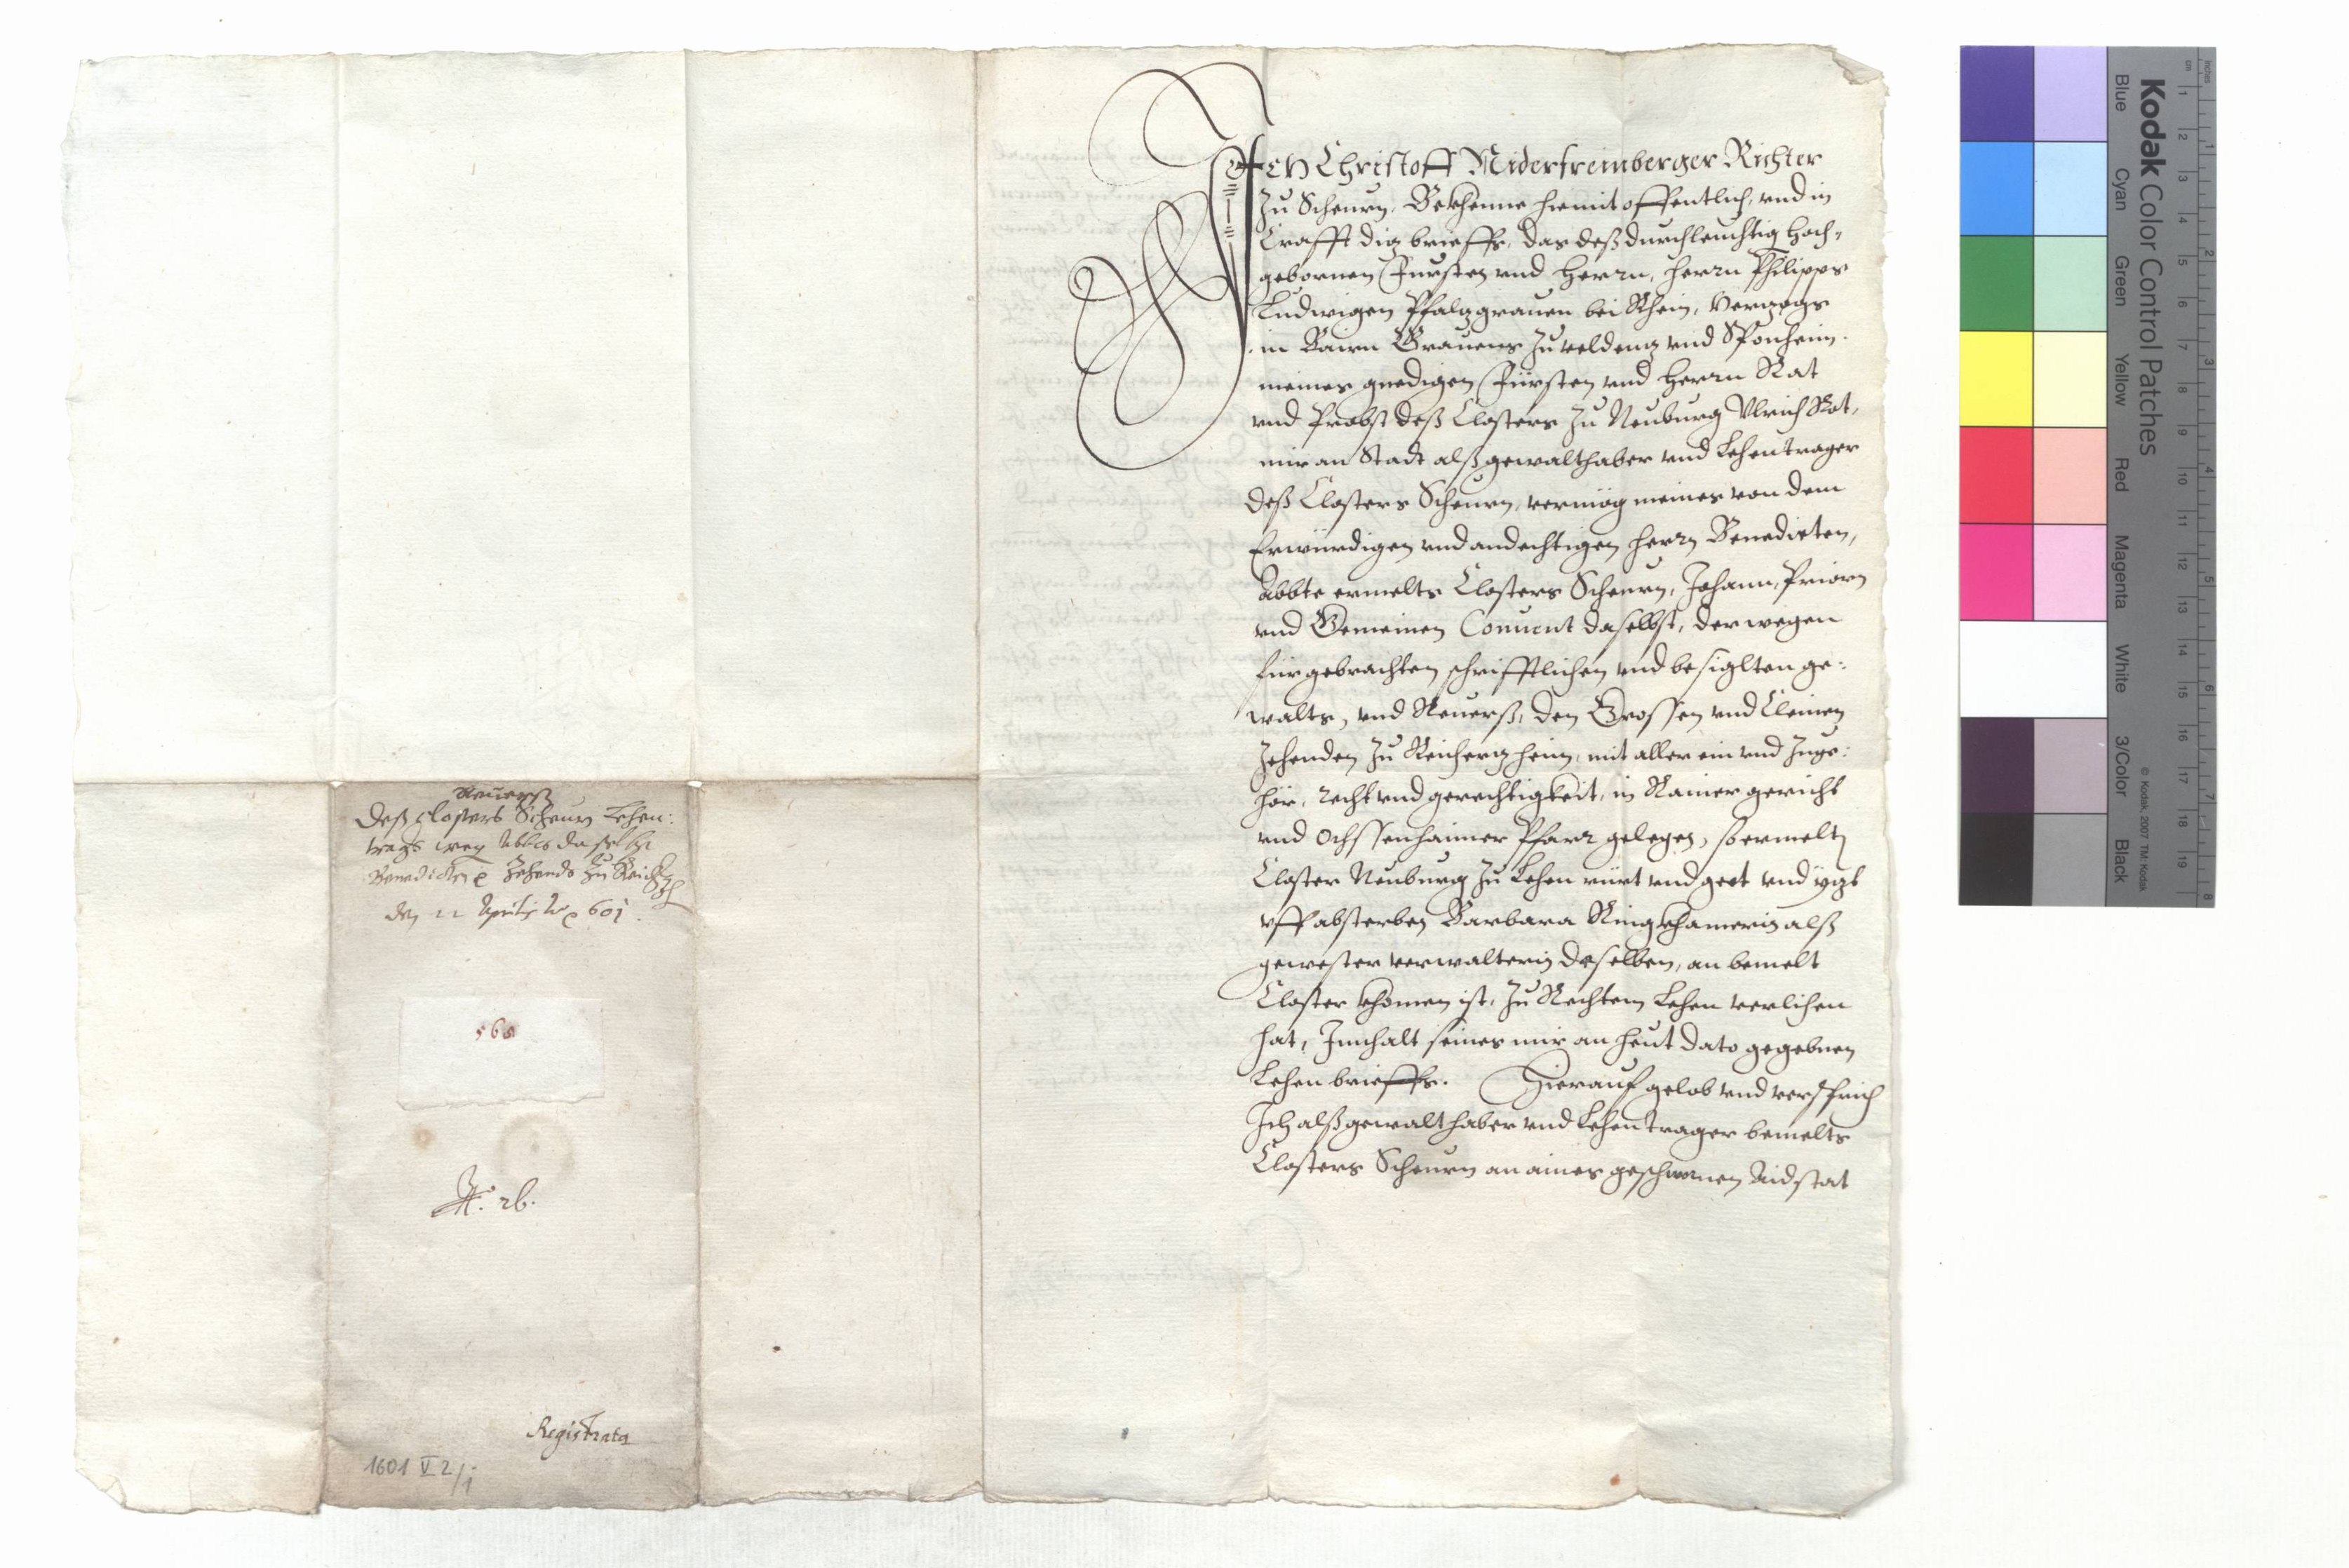 Ich Christoff Niderfreinberger Richter
zu Scheurn, Bekhenne hiemit offentlich, vnd in
Crafft diz brieffs, das deß durchleuchtig hoch-
gebornen Fürsten vnd Herrn, Herrn Philipps
Ludwigen Pfalzgrauen bei Rhein, Herzogs
in Bairn Grauens zu veldenz vnd Sponheim.
meines gnedigen Fürsten vnd Herrn Rat
vnd Probst deß Closters zu Neuburg Vlrich Rot,
mir an Stadt alß gewalthaber vnd Lehentrager
deß Closters Scheurn, vermög meines von dem
Erwürdigen vnd andechtigen herrn Benedicten,
Abbte ermelts Closters Scheurn, Johann, Priorn
vnd Gemeinen Conuent daselbst, derwegen
fürgebrachten schrifftlichen vnd besigleten ge:
walts, vnd Reuerß, den Grossen vnd Cleinen
Zehenden zu Reicherzheim, mit aller ein vnd Zuge:
hör, recht vnd gerechtigkeit, in Rainer gericht
vnd Ochssenhaimer Pfarr gelegen, so ermelts
Closter Neuburg zu Lehen rürt vnd geet vnd yzt
vff absterben Barbara Ringkhamerin alß
gewester verwalterin desselben, an bemelt
Closter khomen ist, zu Rechtem Lehen verlihen
hat, Innhalt seines mir an heut dato gegebnen
Lehenbrieffs. Hierauf gelob vnd versprich
Ich alß gewalthaber vnd Lehentrager bemelts
Closters Scheurn an aines geschwornen Aidstat
Reuerß
Deß Closters Scheurn Lehen:
trags weg Abbts daselbst
Benedicten Zehends zu Reich
den 22 Aprilis 601.
568
N. 26.
Registrata
1601 V 2/1
Kodak Color Control Patches
Blue Cyan Green Yellow Red Magenta White 3/Color Black
© Kodak, 2007 TM: Kodak
cm 1 2 3 4 5 6 7 8 9 10 11 12 13 14 15 16 17 18 19
inches 1 2 3 4 5 6 7 8